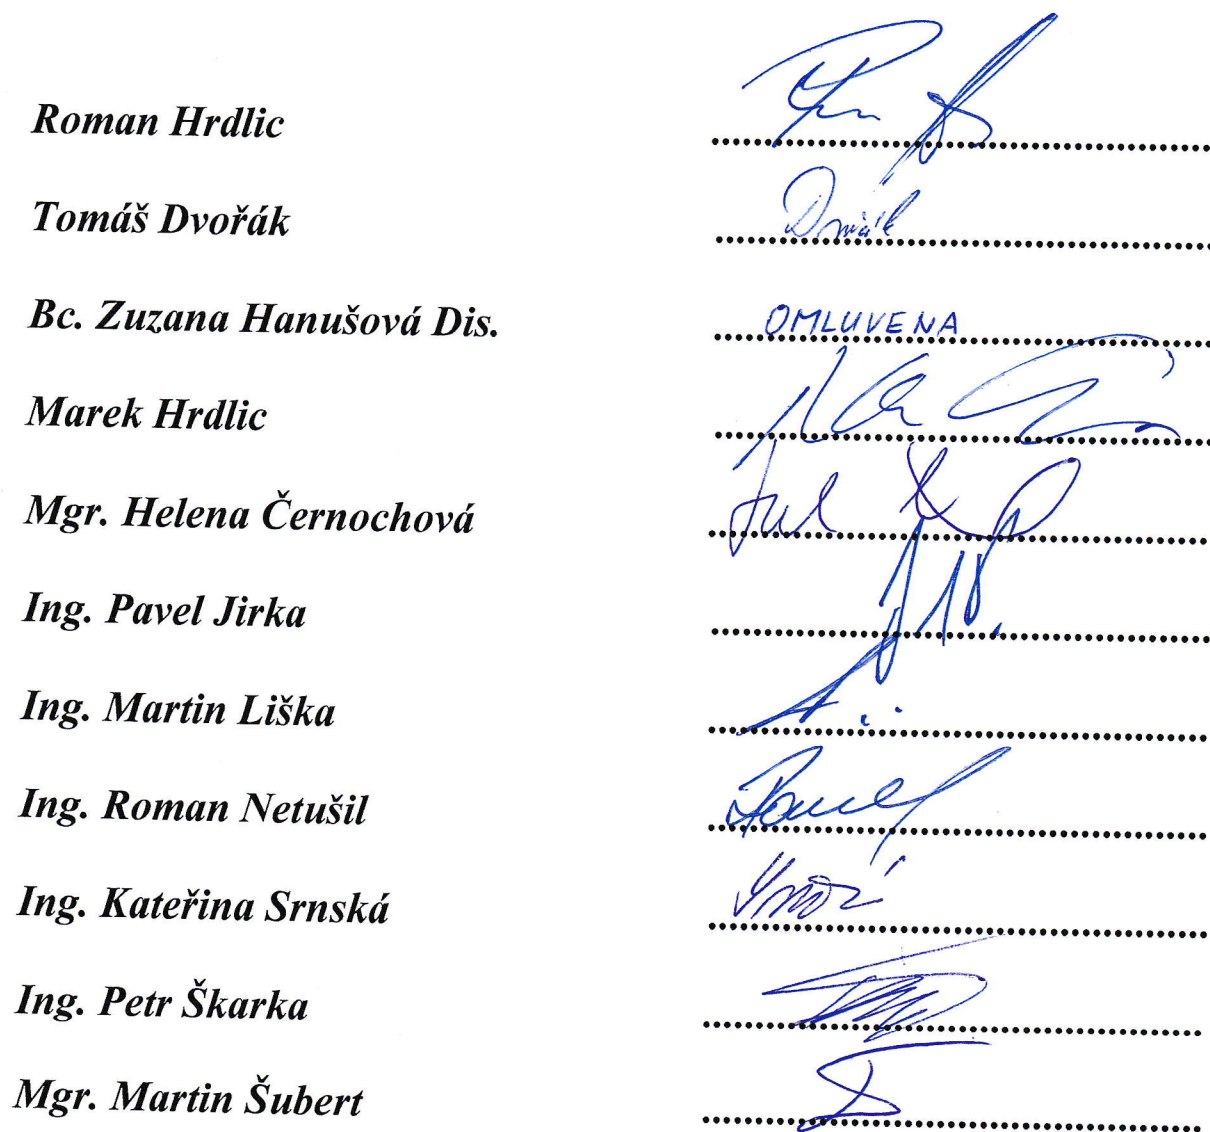 Roman Hrdlic
Tomáš Dvořák Dvořák
Bc. Zuzana Hanušová Dis. OMLUVENA
Marek Hrdlic
Mgr. Helena Černochová
Ing. Pavel Jirka
Ing. Martin Liška
Ing. Roman Netušil
Ing. Kateřina Srnská
Ing. Petr Škarka
Mgr. Martin Šubert